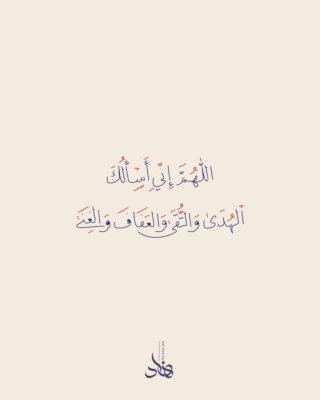 اللَّهُمَّ إِنِّي أَسْأَلُكَ
الْهُدَىٰ وَالتُّقَىٰ وَالعَفَافَ وَالْغِنَىٰ